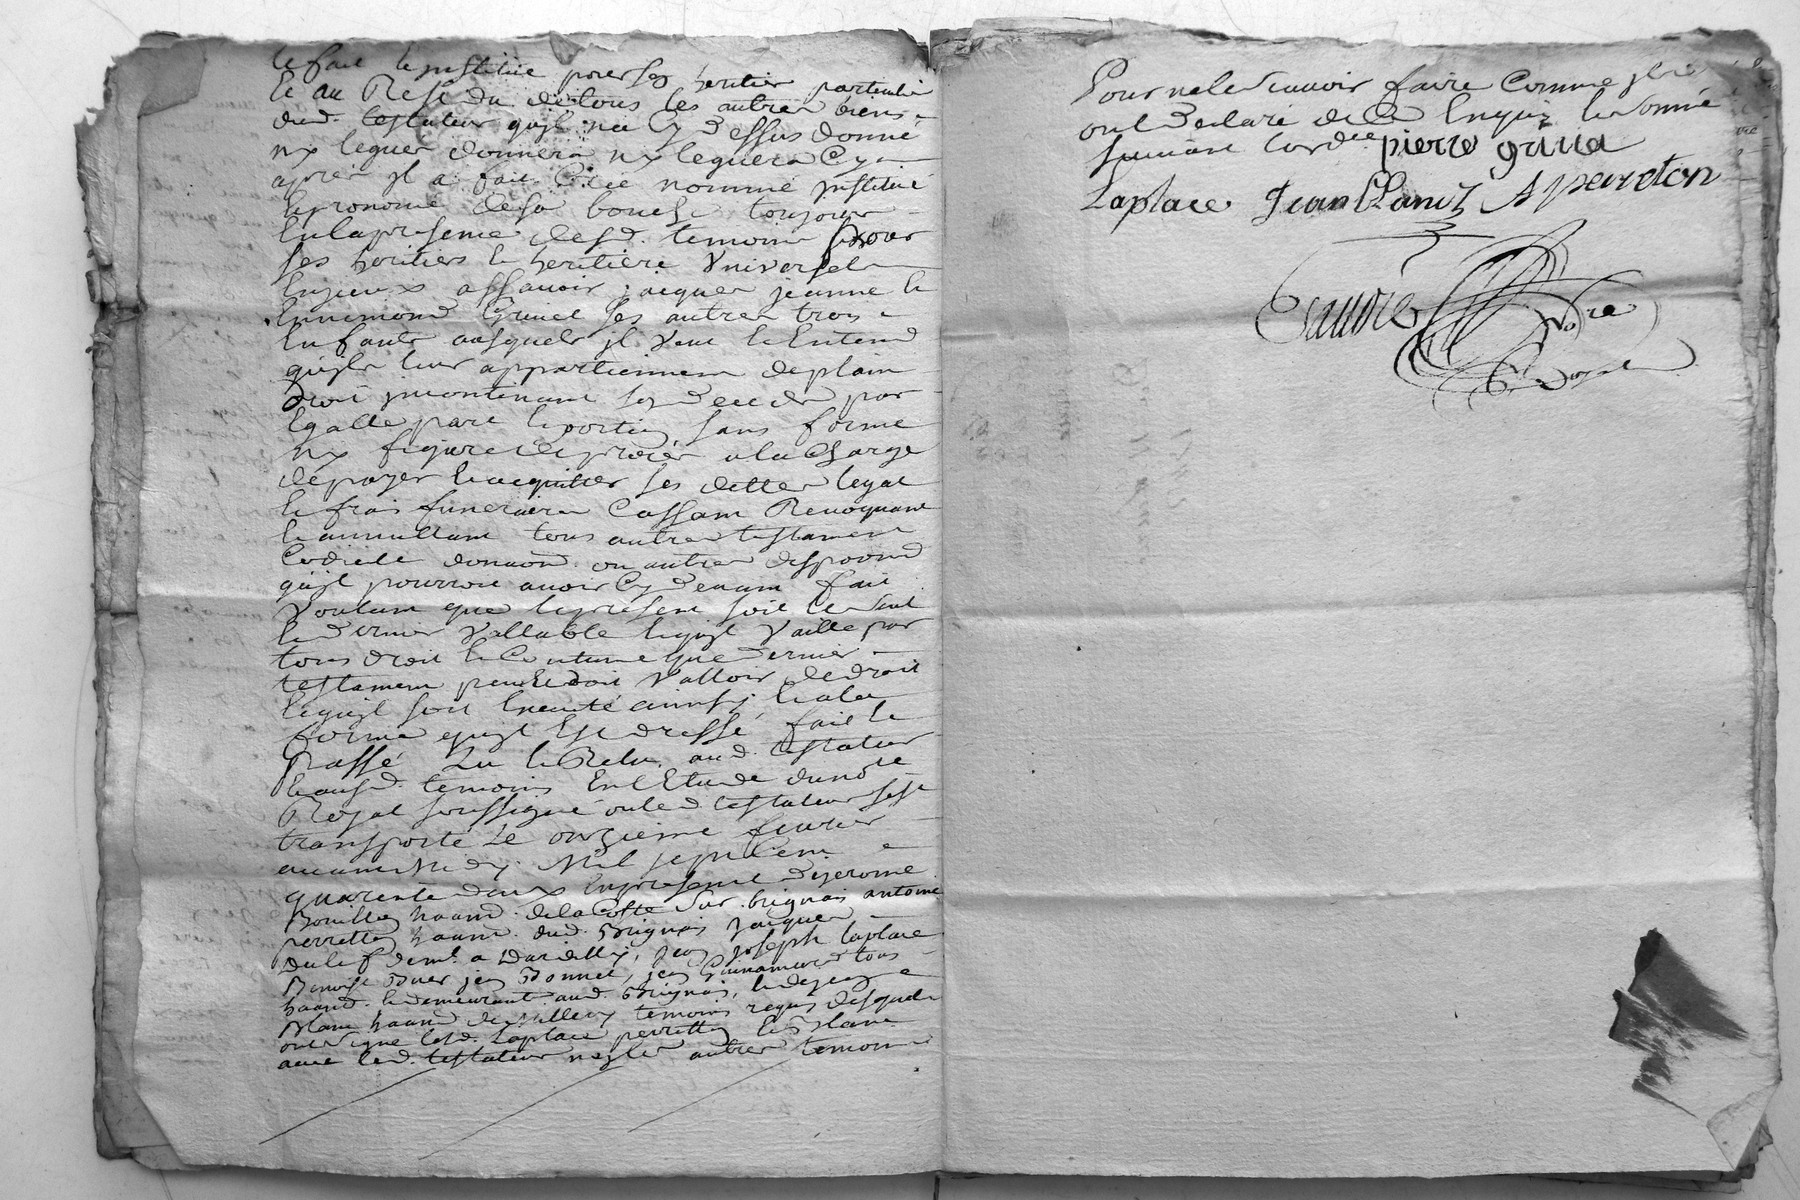 le fait le institue pour ses heritier particulie
Et au Reste du de tous les autres biens
dud. testateur quil na Cy dessus donné
ny legues donnera ny leguera Cy
apres il a fait Crée nommé institué
le prononcé de sa bouche toujour
En la presence desd. temoins pour
ses heritiers Et heritiere Vniversels
assavoir jacques jeanne Et
Ennemond Grived ses autres trois
Enfants ausquels il veut Et Entend
quils leur appartiennent de plain
droit incontinant son deces par
Egalle part Et portion sans forme
ny figure de proces a la Charge
de payer Et acquitter ses dettes legat
Et frais funeraires Cassant Revoquant
Et annullant tous autres testament
Codicile donaõn ou autres dispoõn
quil pourroit avoir Cy devant fait
Voulant que le present soit le seul
Et dernier Vallable Et quil Vaille par
tous droit Et Coutume que dernier
testament peut Et doit Valloir de droit
Et quil soit Executé ainsy Et a la
forme quil Est dressé fait Et
passé Lu Et Relu aud. testateur
Et ausd. temoins En l'Etude du no.re
Royal soussigné ou led testateur sest
transporté Le onzieme fevrier
avant midy Mil sept Cent
quarente deux En presence de jerome
Bouillon haand. de la Coste sur brignais antoine
perretton haand. dud. Brignais jacques
demt. a Dardilly, jean joseph laplace
Benoist jean Bonnet, jean Guinamard tous
haand. Et demeurant aud. Brignais, Et de jean
Blanc haand de Millery temoins requis desquels
ont signe lesd. Laplace perretton Et Blanc
avec led. testateur non les autres temoins
Pour ne le sçavoir faire Comme ils
ont declaré de ce Enquis Et sommé
suivant lord.ce pierre grived
Laplace Jean blanc A perreton
No.re
Royal